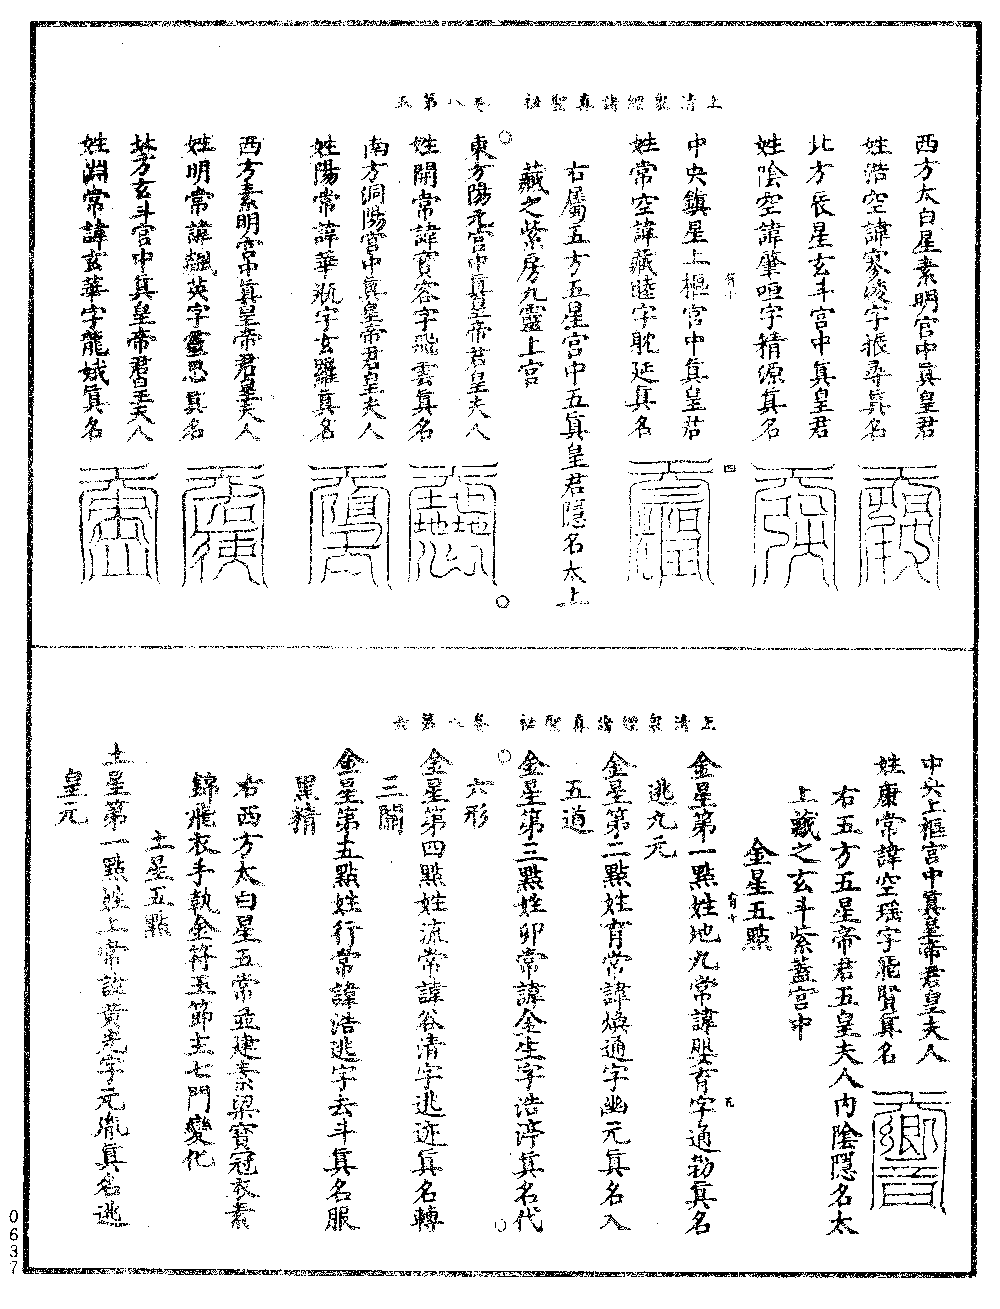 上清衆經諸真聖祕　卷八第五
西方太白星素明宮中真皇君
姓浩空諱寥凌字振尋真名
北方辰星玄斗宮中真皇君
姓陰空諱肇咺字精源真名
中央鎮星上樞宮中真皇君
有十
四
姓常空諱藏睦字耽延真名
右屬五方五星宮中五真皇君隱名太上
藏之紫房九靈上宮
東方陽元宮中真皇帝君皇夫人
姓開常諱寶容字飛雲真名
南方洞陽宮中真皇帝君皇夫人
姓陽常諱華瓶字玄羅真名
西方素明宮中真皇帝君皇夫人
姓明常諱飆英字靈恩真名
北方玄斗宮中真皇帝君皇夫人
姓淵常諱玄華字龍娥真名
上清衆經諸真聖祕　卷八第六
中央上樞宮中真皇帝君皇夫人
姓康常諱空瑶字飛賢真名
右五方五星帝君五皇夫人内陰隱名太
上藏之玄斗紫蓋宮中
金星五點
有十
五
金星第一點姓地九常諱嬰育字通勃真名
逃九元
金星第二點姓育常諱煥通字幽元真名入
五道
金星第三點姓卯常諱金生字浩渟真名代
六形
金星第四點姓流常諱谷清字逃迹真名轉
三關
金星第五點姓行常諱浩逃字去斗真名服
黑精
右西方太白星五常並建素梁寶冠衣素
錦飛衣手執金符玉節主七門變化
土星五點
土星第一點姓上常諱黃光字元胤真名逃
皇元
0637